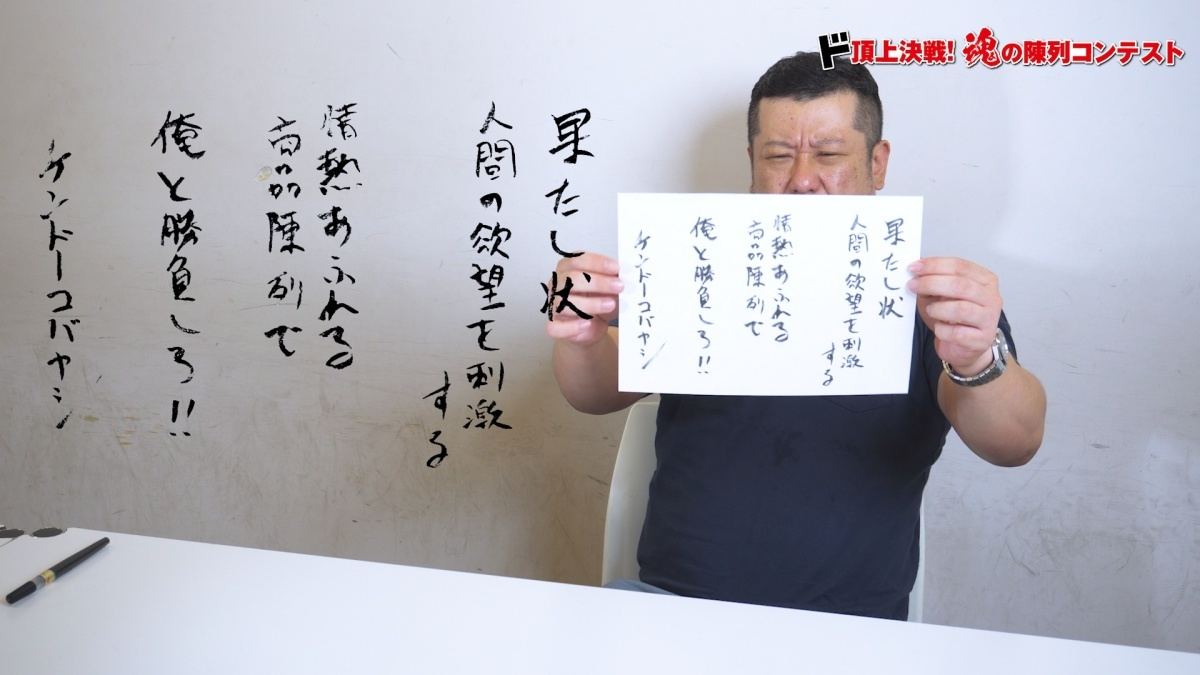 ド頂上決戦!魂の陳列コンテスト
果たし状
人間の欲望を刺激
する
情熱あふれる
商品陳列で
俺と勝負しろ!!
ケンドーコバヤシ
果たし状
人間の欲望を刺激
する
情熱あふれる
商品陳列で
俺と勝負しろ!!
ケンドーコバヤシ